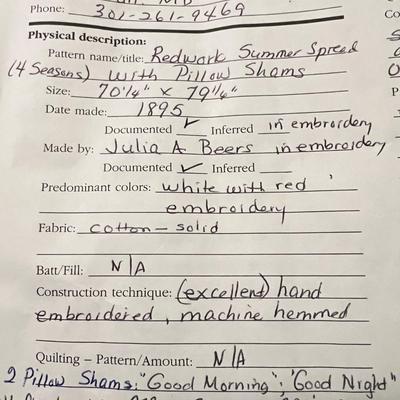 Phone: 301-261-9469
Physical description:
Pattern name/title: Redwork Summer Spread
(4 Seasons) with Pillow Shams
Size: 70 1/4" x 79 1/4"
Date made: 1895
Documented ✓ Inferred in embroidery
Made by: Julia A Beers in embroidery
Documented ✓ Inferred
Predominant colors: white with red
embroidery
Fabric: cotton - solid
Batt/Fill: N/A
Construction technique: (excellent) hand
embroidered, machine hemmed
Quilting – Pattern/Amount: N/A
2 Pillow Shams: "Good Morning"; "Good Night"